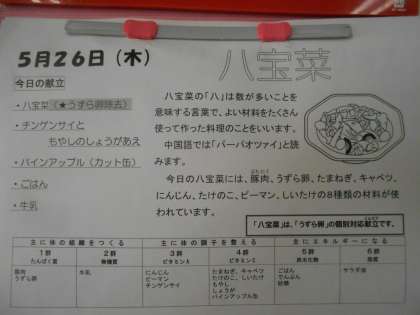 5月26日（木）
八宝菜
今日の献立
・八宝菜（★うずら卵除去）
・チンゲンサイと
もやしのしょうがあえ
・パインアップル（カット缶）
・ごはん
・牛乳
八宝菜の「八」は数が多いことを
意味する言葉で、よい材料をたくさん
使って作った料理のことをいいます。
中国語では「パーパオツァイ」と読
みます。
今日の八宝菜には、豚肉、うずら卵、たまねぎ、キャベツ、
にんじん、たけのこ、ピーマン、しいたけの8種類の材料が使
われています。
「八宝菜」は、「うずら卵」の個別対応献立です。
主に体の組織をつくる 主に体の調子を整える 主にエネルギーになる
1群 2群 3群 4群 5群 6群
たんぱく質 無機質 ビタミンA ビタミンC 炭水化物 脂質
豚肉 牛乳 にんじん たまねぎ、キャベツ ごはん サラダ油
うずら卵 ピーマン たけのこ、しいたけ でんぷん
チンゲンサイ もやし 砂糖
しょうが
パインアップル缶